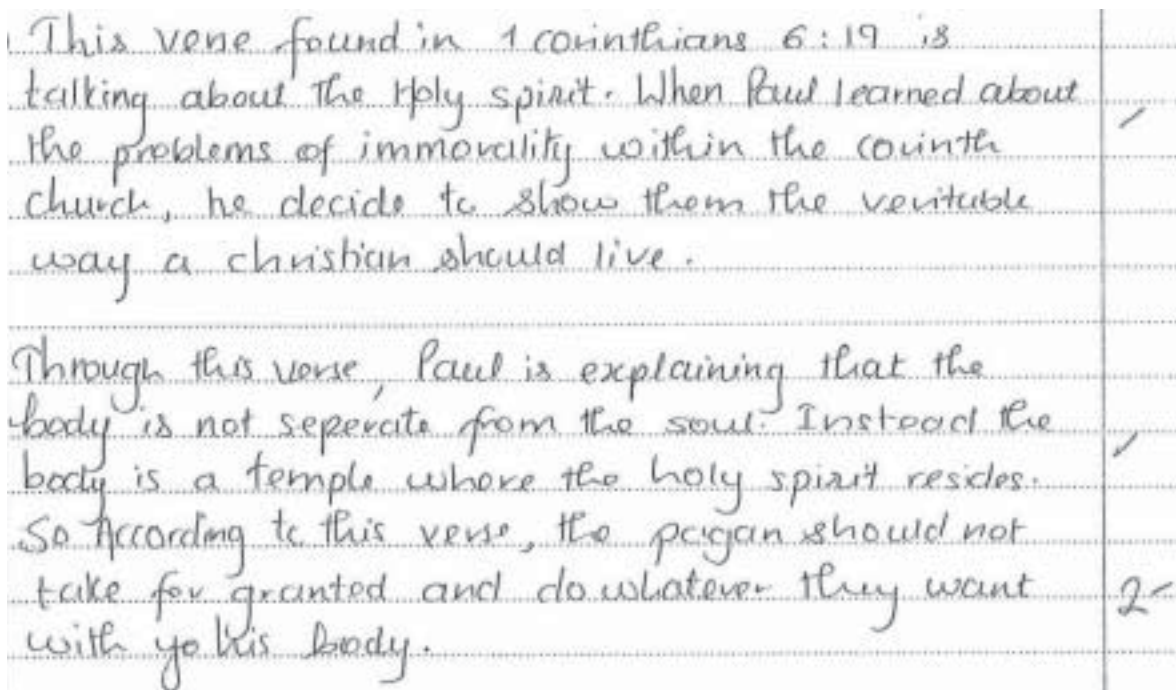 This verse found in 1 corinthians 6:19 is
talking about The Holy spirit. When Paul learned about
the problems of immorality within the corinth
church, he decide to show them the veritable
way a christian should live.
Through this verse, Paul is explaining that the
body is not seperate from the soul. Instead the
body is a temple where the holy spirit resides.
So According to this verse, the pagan should not
take for granted and do whatever they want
2
with yo his body.